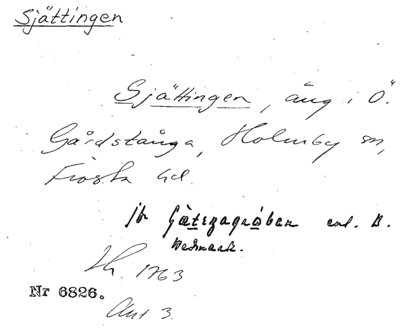 Sjättingen
Sjättingen, äng i Ö.
Gårdstånga, Holmby sn,
Frosta hd.
jfr enl. B.
Hedmark.
Lh. 1763
Nr 6826.
Akt 3.